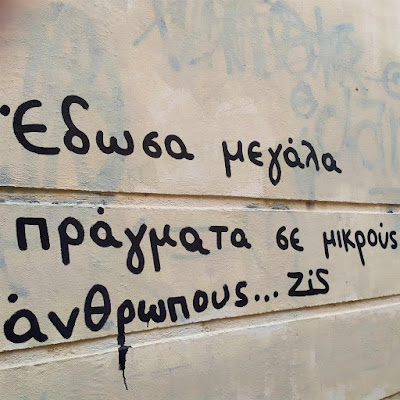 Έδωσα μεγάλα
πράγματα σε μικρούς
άνθρωπους... zis